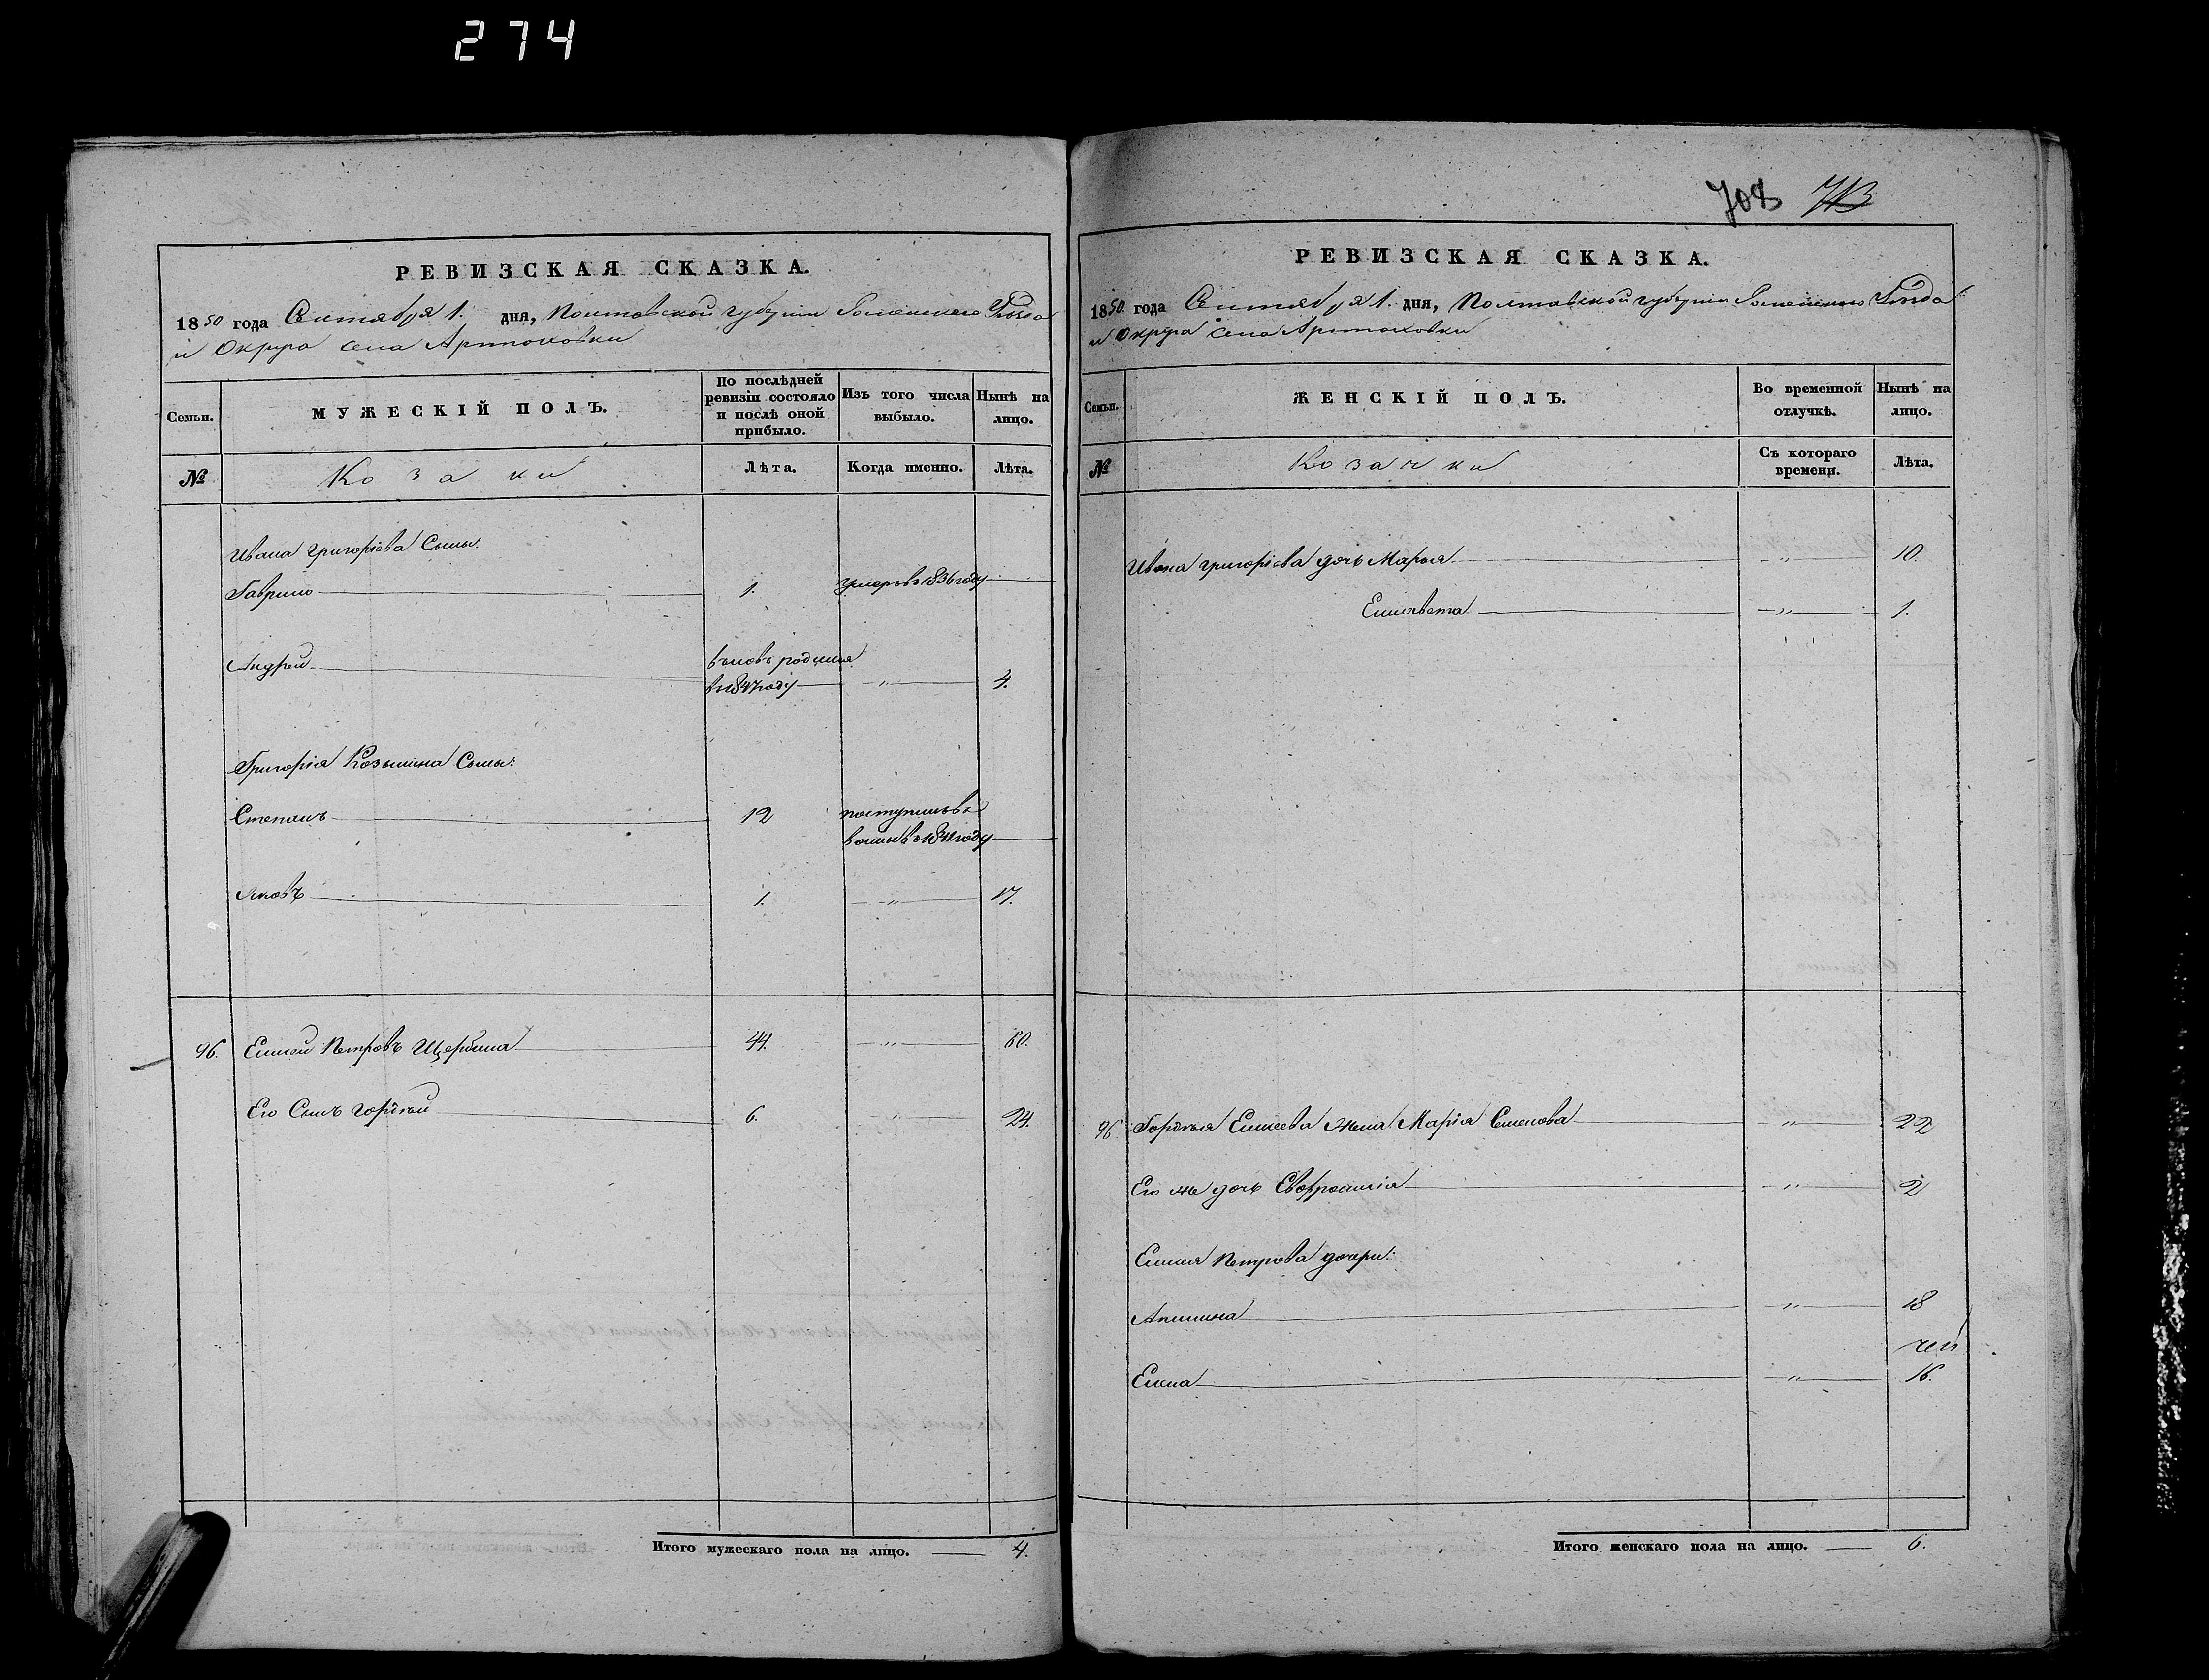 274
708 713
РЕВИЗСКАЯ СКАЗКА.
1850 года Сентября 1. дня, Полтавской губерніи Роменскаго Уѣзда
и Округа села Артюховки
Семьи.
МУЖЕСКІЙ ПОЛЪ.
По послѣдней ревизіи состояло и послѣ оной прибыло.
Изъ того числа выбыло.
Нынѣ на лицо.
№
Козаки
Лѣта.
Когда именно.
Лѣта.
Ивана Григорієва Сыны:
Гаврило 1. умеръ въ 1836 году
Андрей вновь родился
въ 1847 году " 4.
Григорія Козьмина Сыны:
Степанъ 12 поступилъ въ
въ 1841 году
Яковъ 1. " 17.
96. Елисей Петровъ Щербина 44. " 60.
Его Сынъ Гордѣй 6. " 24.
Итого мужескаго пола на лицо. 4.
РЕВИЗСКАЯ СКАЗКА.
1850 года Сентября 1. дня, Полтавской губерніи Роменскаго Уѣзда
и Округа села Артюховки
Семьи.
ЖЕНСКІЙ ПОЛЪ.
Во временной отлучкѣ.
Нынѣ на лицо.
№
Козачки
Съ котораго времени.
Лѣта.
Ивана Григорієва дочь Марья " 10.
Елисавета " 1.
96 Гордѣя Елисеева жена Марія Семенова " 22
Его же дочь Евфросинія " 2
Елисея Петрова дочери:
Акилина " 18
Елена " 16.
Итого женскаго пола на лицо. 6.